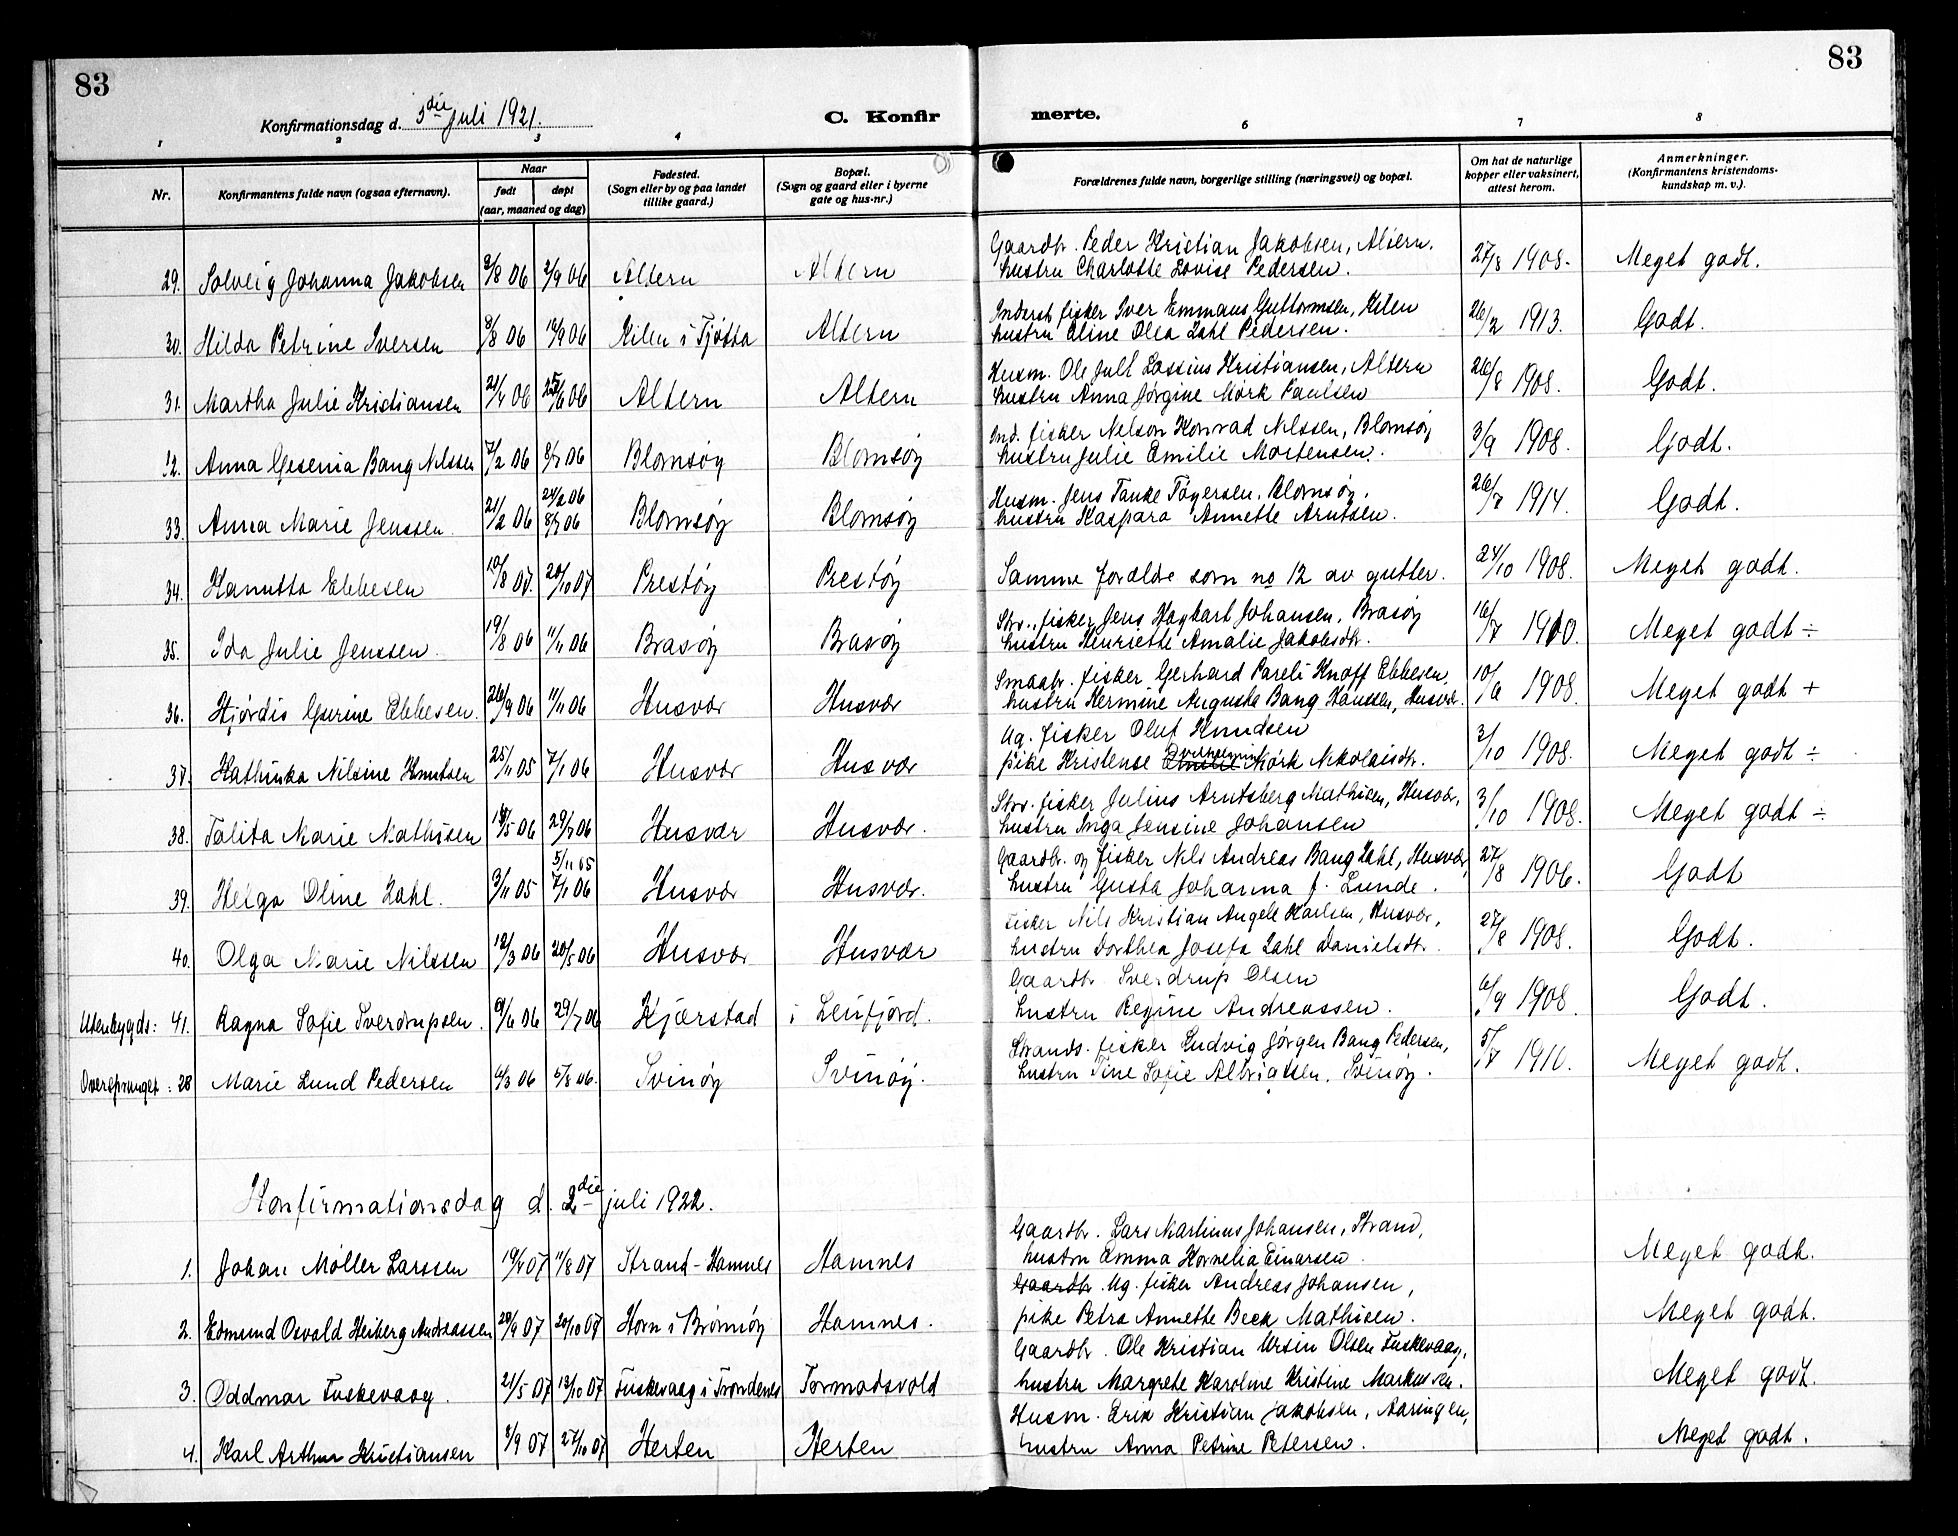 83
83
Konfirmationsdag d. 3die juli 1921.
C. Konfirmerte.
1 2 3 4 6 7 8
Nr.
Konfirmantens fulde navn (ogsaa efternavn).
Naar
født
døpt
(aar, maaned og dag)
Fødested.
(Sogn eller by og paa landet
tillike gaard.)
Bopæl.
(Sogn og gaard eller i byerne
gate og hus-nr.)
Forældrenes fulde navn, borgerlige stilling (næringsvei) og bopæl.
Om hat de naturlige
kopper eller vaksinert,
attest herom.
Anmerkninger.
(Konfirmantens kristendoms-
kundskap m. v.).
Gaardbr. Peder Kristian Jakobsen, Altern.
29. Solveig Johanna Jakobsen 2/8 06 2/9 06 Altern Altern hustru Charlotte Lovise Pedersen. 27/8 1908. Meget godt.
Inderst fisker Iver Emmaus Guttormsen, Kilen
30. Hilda Petrine Iversen 8/8 06 16/9 06 Kilen i Tjøtta Altern hustru Eline Olea Zahl Pedersen. 26/2 1913. Godt.
Husm. Ole Jull Zassius Kristiansen, Altern
31. Martha Julie Kristiansen 21/4 06 25/6 06 Altern Altern hustru Anna Jørgine Mørk Paulsen 26/8 1908. Godt.
Ind. fisker Nelson Konrad Nilssen, Blomsøy
32. Anna Gesenia Bang Nilssen 7/2 06 8/7 06 Blomsøy Blomsøy hustru Julie Emilie Mortensen. 3/9 1908. Godt.
24/2 06 Husm. Jens Tanke Tøgersen, Blomsøy,
33. Anna Marie Jenssen. 21/2 06 8/7 06 Blomsøy Blomsøy hustru Kaspara Annette Arntsen. 26/7 1914. Godt.
34. Hanutta Ebbesen 10/8 07. 20/10 07 Prestøy Prestøy Samme forældre som no 12 av gutter. 24/10 1908. Meget godt.
Str., fisker Jens Hagbart Johansen, Brasøy
35. Ida Julie Jenssen. 19/8 06 11/11 06 Brasøy Brasøy hustru Henriette Amalie Jakobsdtr. 16/7 1910. Meget godt ÷
Smaabr. fisker Gerhard Pareli Knoff Ebbesen,
36. Hjørdis Gurine Ebbesen. 26/9 06 11/11 06 Husvær Husvær hustru Hermine Augusta Bang Hanssen, Husvær. 10/9 1908. Meget godt +
Ug. fisker Oluf Knudsen
37. Kathinka Nilsine Knutsen 25/11 05 7/1 06 Husvær Husvær pike Kristense Vilhelmine Mørk Nikolaisdtr. 3/10 1908. Meget godt ÷
Str. fisker Julius Arntsberg Mathisen, Husvær,
38. Talita Marie Mathisen 18/5 06 29/7 06 Husvær Husvær. hustru Inga Jensine Johansen 3/10 1908. Meget godt ÷
5/11 05 Gaardbr. og fisker Nils Andreas Bang Zahl, Husvær,
39. Helga Oline Zahl. 3/11 05 7/1 06 Husvær Husvær. hustru Gusta Johanna f. Lunde. 27/8 1906. Godt
Fisker Nils Kristian Angell Karlsen, Husvær,
40. Olga Marie Nilssen 12/3 06 20/5 06 Husvær Husvær hustru Dorthea Josefa Zahl Danielsdtr. 27/8 1908. Godt.
Gaardbr Sverdrup Olsen
Utenbygds: 41. Ragna Sofie Sverdrupsen. 9/6 06 29/7 06 Kjærstad i Leirfjord. hustru Regine Andreassen. 6/9 1908. Godt.
Strands. fisker Ludvig Jørgen Bang Pedersen,
Oversprunget: 28 Marie Lund Pedersen 4/3 06 5/8 06. Svinøy Svinøy. hustru Tine Sofie Albrigtsen, Svinøy. 5/7 1910. Meget godt.
Konfirmationsdag d. 2die juli 1922.
Gaardbr. Lars Martinus Johansen, Strand,
1. Johan Møller Larssen 19/4 07 11/8 07 Strand-Hamnes Hamnes hustru Emma Kornelia Einarsen. Meget godt.
Gaardbr. Ug. fisker Andreas Johansen,
2. Edmund Osvald Heiberg Andreassen 28/9 07 20/10 07 Horn i Brønnøy Hamnes. pike Petra Annette Beck Mathisen. Meget godt.
Gaardbr. Ole Kristian Ursin Olsen Fuskevaag,
3. Oddmar Fuskevaag. 21/5 07 13/10 07 Fuskevaag i Trondenes Tormodsvold hustru Margrete Karoline Kristine Markussen. Meget godt.
Husm. Erik Kristian Jakobsen, Aaringen,
4. Karl Arthur Kristiansen 1/9 07 27/10 07 Herten Herten hustru Anna Petrine Petersen. Meget godt.